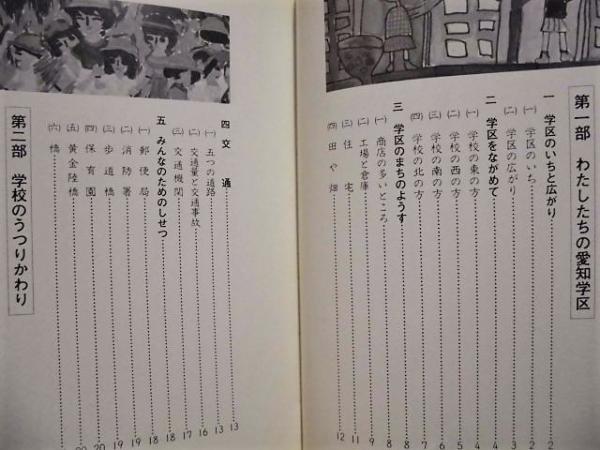 第一部 わたしたちの愛知学区
一 学区のいちと広がり……2
(一) 学区のいち……2
(二) 学区の広がり……3
二 学区をながめて……4
(一) 学校の東の方……4
(二) 学校の西の方……5
(三) 学校の南の方……6
(四) 学校の北の方……7
三 学区のまちのようす……8
(一) 商店の多いところ……8
(二) 工場と倉庫……9
(三) 住宅……11
(四) 田や畑……12
四 交通……13
(一) 五つの道路……13
(二) 交通量と交通事故……16
(三) 交通機関……17
五 みんなのためのしせつ……18
(一) 郵便局……18
(二) 消防署……19
(三) 歩道橋……19
(四) 保育園……20
(五) 黄金陸橋……
(六) 橋……
第二部 学校のうつりかわり